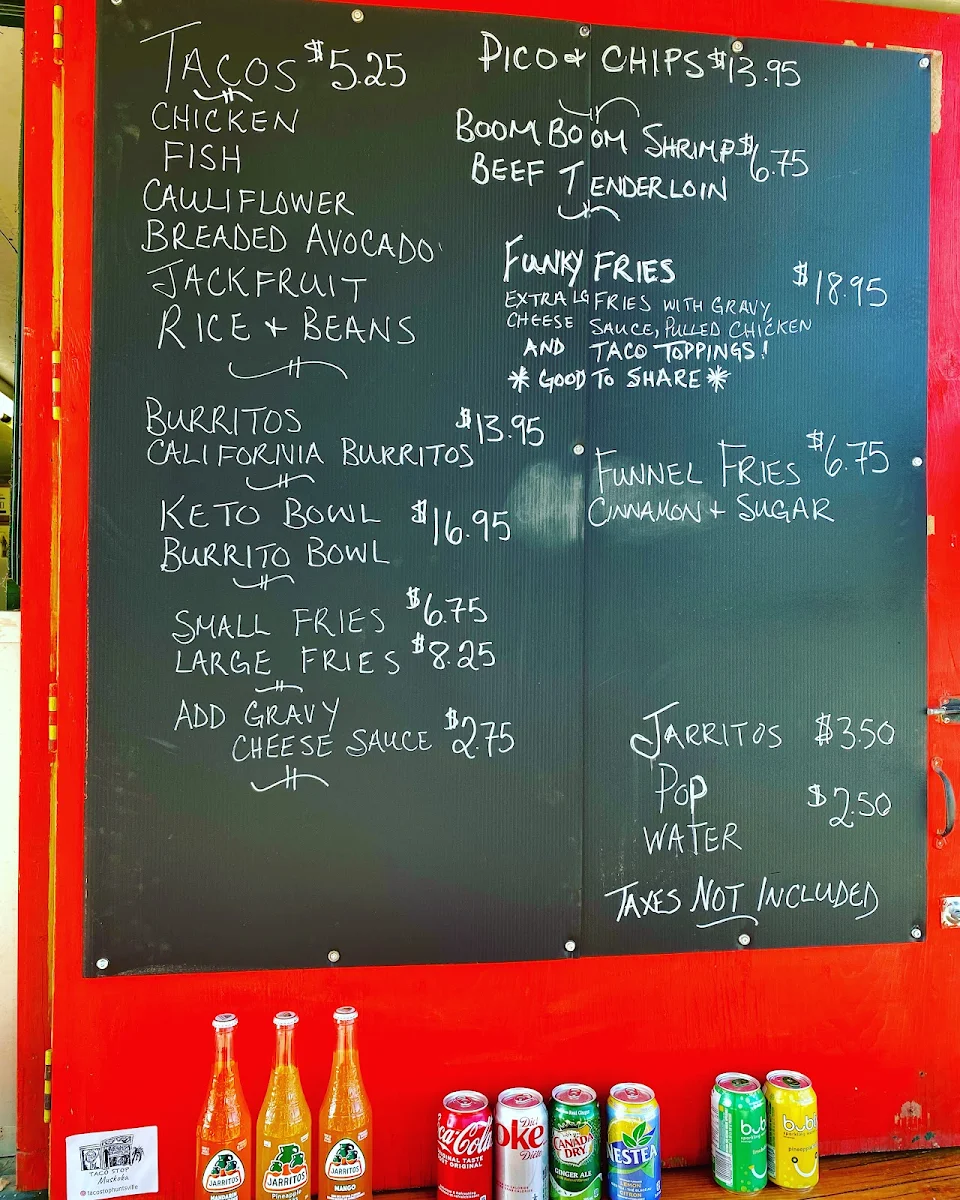 TACOS $5.25
CHICKEN
FISH
CAULIFLOWER
BREADED AVOCADO
JACKFRUIT
RICE + BEANS
BURRITOS $13.95
CALIFORNIA BURRITOS
KETO BOWL $16.95
BURRITO BOWL
SMALL FRIES $6.75
LARGE FRIES $8.25
ADD GRAVY
CHEESE SAUCE $2.75
PICO + CHIPS $13.95
BOOM BOOM SHRIMP $6.75
BEEF TENDERLOIN
FUNKY FRIES $18.95
EXTRA LG FRIES WITH GRAVY,
CHEESE SAUCE, PULLED CHICKEN
AND TACO TOPPINGS!
* GOOD TO SHARE *
FUNNEL FRIES $6.75
CINNAMON + SUGAR
JARRITOS $3.50
POP $2.50
WATER
TAXES NOT INCLUDED
TACO STOP
Muskoka
@tacostophuntsville
JARRITOS
MANDARIN
JARRITOS
Pineapple
JARRITOS
MANGO
Coca-Cola
ORIGINAL TASTE
Diet
oke
Diète
CANADA
DRY
GINGER ALE
NESTEA
LEMON
CITRON
bub
bubl
pineapple